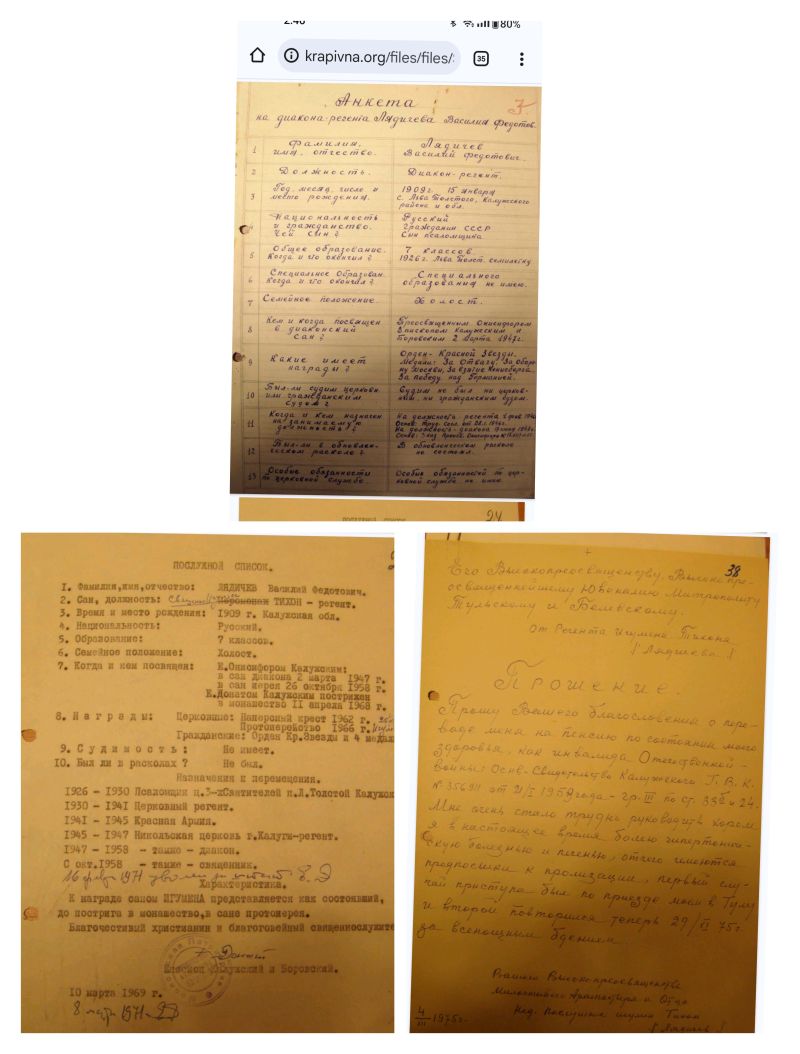 2:40
80%
krapivna.org/files/files/
35
Анкета
3.
на диакона-регента Лядичева Василия Федотов.
1 Фамилия, имя, отчество. Лядичев Василий Федотович.
2 Должность. Диакон-регент.
3 Год, месяц, число и место рождения. 1909 г. 15 января с. Льва Толстого, Калужского района и обл.
4 Национальность и гражданство. Чей сын? Русский гражданин СССР Сын псаломщика
5 Общее образование. Когда и что окончил? 7 классов 1926 г. Льва Толст. семилетку
6 Специальное образован. Когда и что окончил? Специального образования не имею.
7 Семейное положение. Холост.
8 Кем и когда посвящен в диаконский сан? Преосвященным Онисифором Епископом Калужским и Боровским 2 марта 1947 г.
9 Какие имеет награды? Орден-Красной Звезды. Медали: За Отвагу, За Оборону Москвы, За взятие Кенигсберга, За победу над Германией.
10 Был-ли судим церковн. или гражданским судом? Судим не был ни церковным, ни гражданским судом.
11 Когда и кем назначен на занимаемую должность? На должность регента
12 Был-ли в обновленческом расколе? В обновленческом расколе не состоял.
13 Особые обязанности по церковной службе. Особых обязанностей по церковной службе не имею
ПОСЛУЖНОЙ СПИСОК
24
ПОСЛУЖНОЙ СПИСОК.
1. Фамилия,имя,отчество: ЛЯДИЧЕВ Василий Федотович.
2. Сан, должность: Иеромонах ТИХОН – регент.
3. Время и место рождения: 1909 г. Калужская обл.
4. Национальность: Русский.
5. Образование: 7 классов.
6. Семейное положение: Холост.
7. Когда и кем посвящен: Е.Онисифором Калужским:
в сан диакона 2 марта 1947 г.
в сан иерея 26 октября 1958 г.
Е.Донатом Калужским пострижен
в монашество 11 апреля 1968 г.
8. Н а г р а д ы: Церковные: Наперсный крест 1962 г.
Протоиерейство 1966 г.
Гражданские: Орден Кр.Звезды и 4 медал
9. С у д и м о с т ь : Не имеет.
10. Был ли в расколах ? Не был.
Назначения и перемещения.
1926 – 1930 Псаломщик ц.3-хСвятителей п.Л.Толстой Калужск
1930 – 1941 Церковный регент.
1941 – 1945 Красная Армия.
1945 – 1947 Никольская церковь г.Калуги-регент.
1947 – 1958 – также – диакон.
С окт.1958 – также – священник.
16 февр 1971
Характеристика.
К награде саном ИГУМЕНА представляется как состоявший,
до пострига в монашество,в сане протоиерея.
Благочестивый христианин и благоговейный священнослужите
Епископ Калужский и Боровский.
10 марта 1969 г.
8 1971
38
Его Высокопреосвященству, Высокопре-
освященнейшему Ювеналию Митрополиту
Тульскому и Белевскому.
от Регента Игумена Тихона
/ Лядичева /
Прошение.
Прошу Вашего благословения о пере-
воде меня на пенсию по состоянию моего
здоровья, как инвалида Отечественной
войны: Осн-Свидетельство Калужского Г.В.К.
№ 356911 от 21/I 1959 года – гр. III по ст.
Мне очень стало трудно руководить хором
я в настоящее время болею гипертониче-
скую болезнью и печенью, отчего имеются
предпосылки к , первый слу-
чай приступа был по приезде моем в Тулу
и второй повторился теперь 29/ 75г.
за всенощным бдением.
Вашего Высокопреосвященства
Милостивого Архипастыря и Отца
Нед. Послушник игумен Тихон
/ Лядичев /
4/XII 1975г.